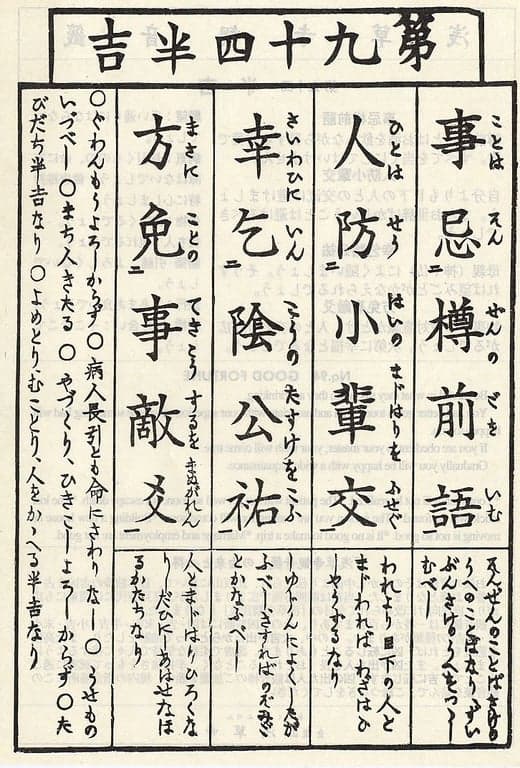 第九十四半吉
事忌樽前語
ことは そん ぜんの ごを いむ
人防小輩交
ひとは せう はいの まじはりをふせぐ
幸乞陰公祐
さいわひに いん こうの たすけをこふ
方免事敵爻
まさに ことの てきこう するを まぬがれん
そんぜんのことばとはさけの
うへのことばなり ずい
ぶんさけの
むべし
われより目下の人と
まじわれば わざはひ
するなり
によくしたが
ふべし さすればのぞみご
とかなふべし
人とまじはりひろくな
りしだひにしあはせなほ
るかたちなり
よろしからず〇病人長引とも命にさわりなし〇うせもの
いづべし〇まち人きたる〇やづくり ひきこしよろしからず〇た
びだち半吉なり〇よめとり、むことり、人をかゝへる半吉なり